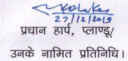 27/12/2019
प्रधान हार्प, प्लाण्डू/
उनके नामित प्रतिनिधि।